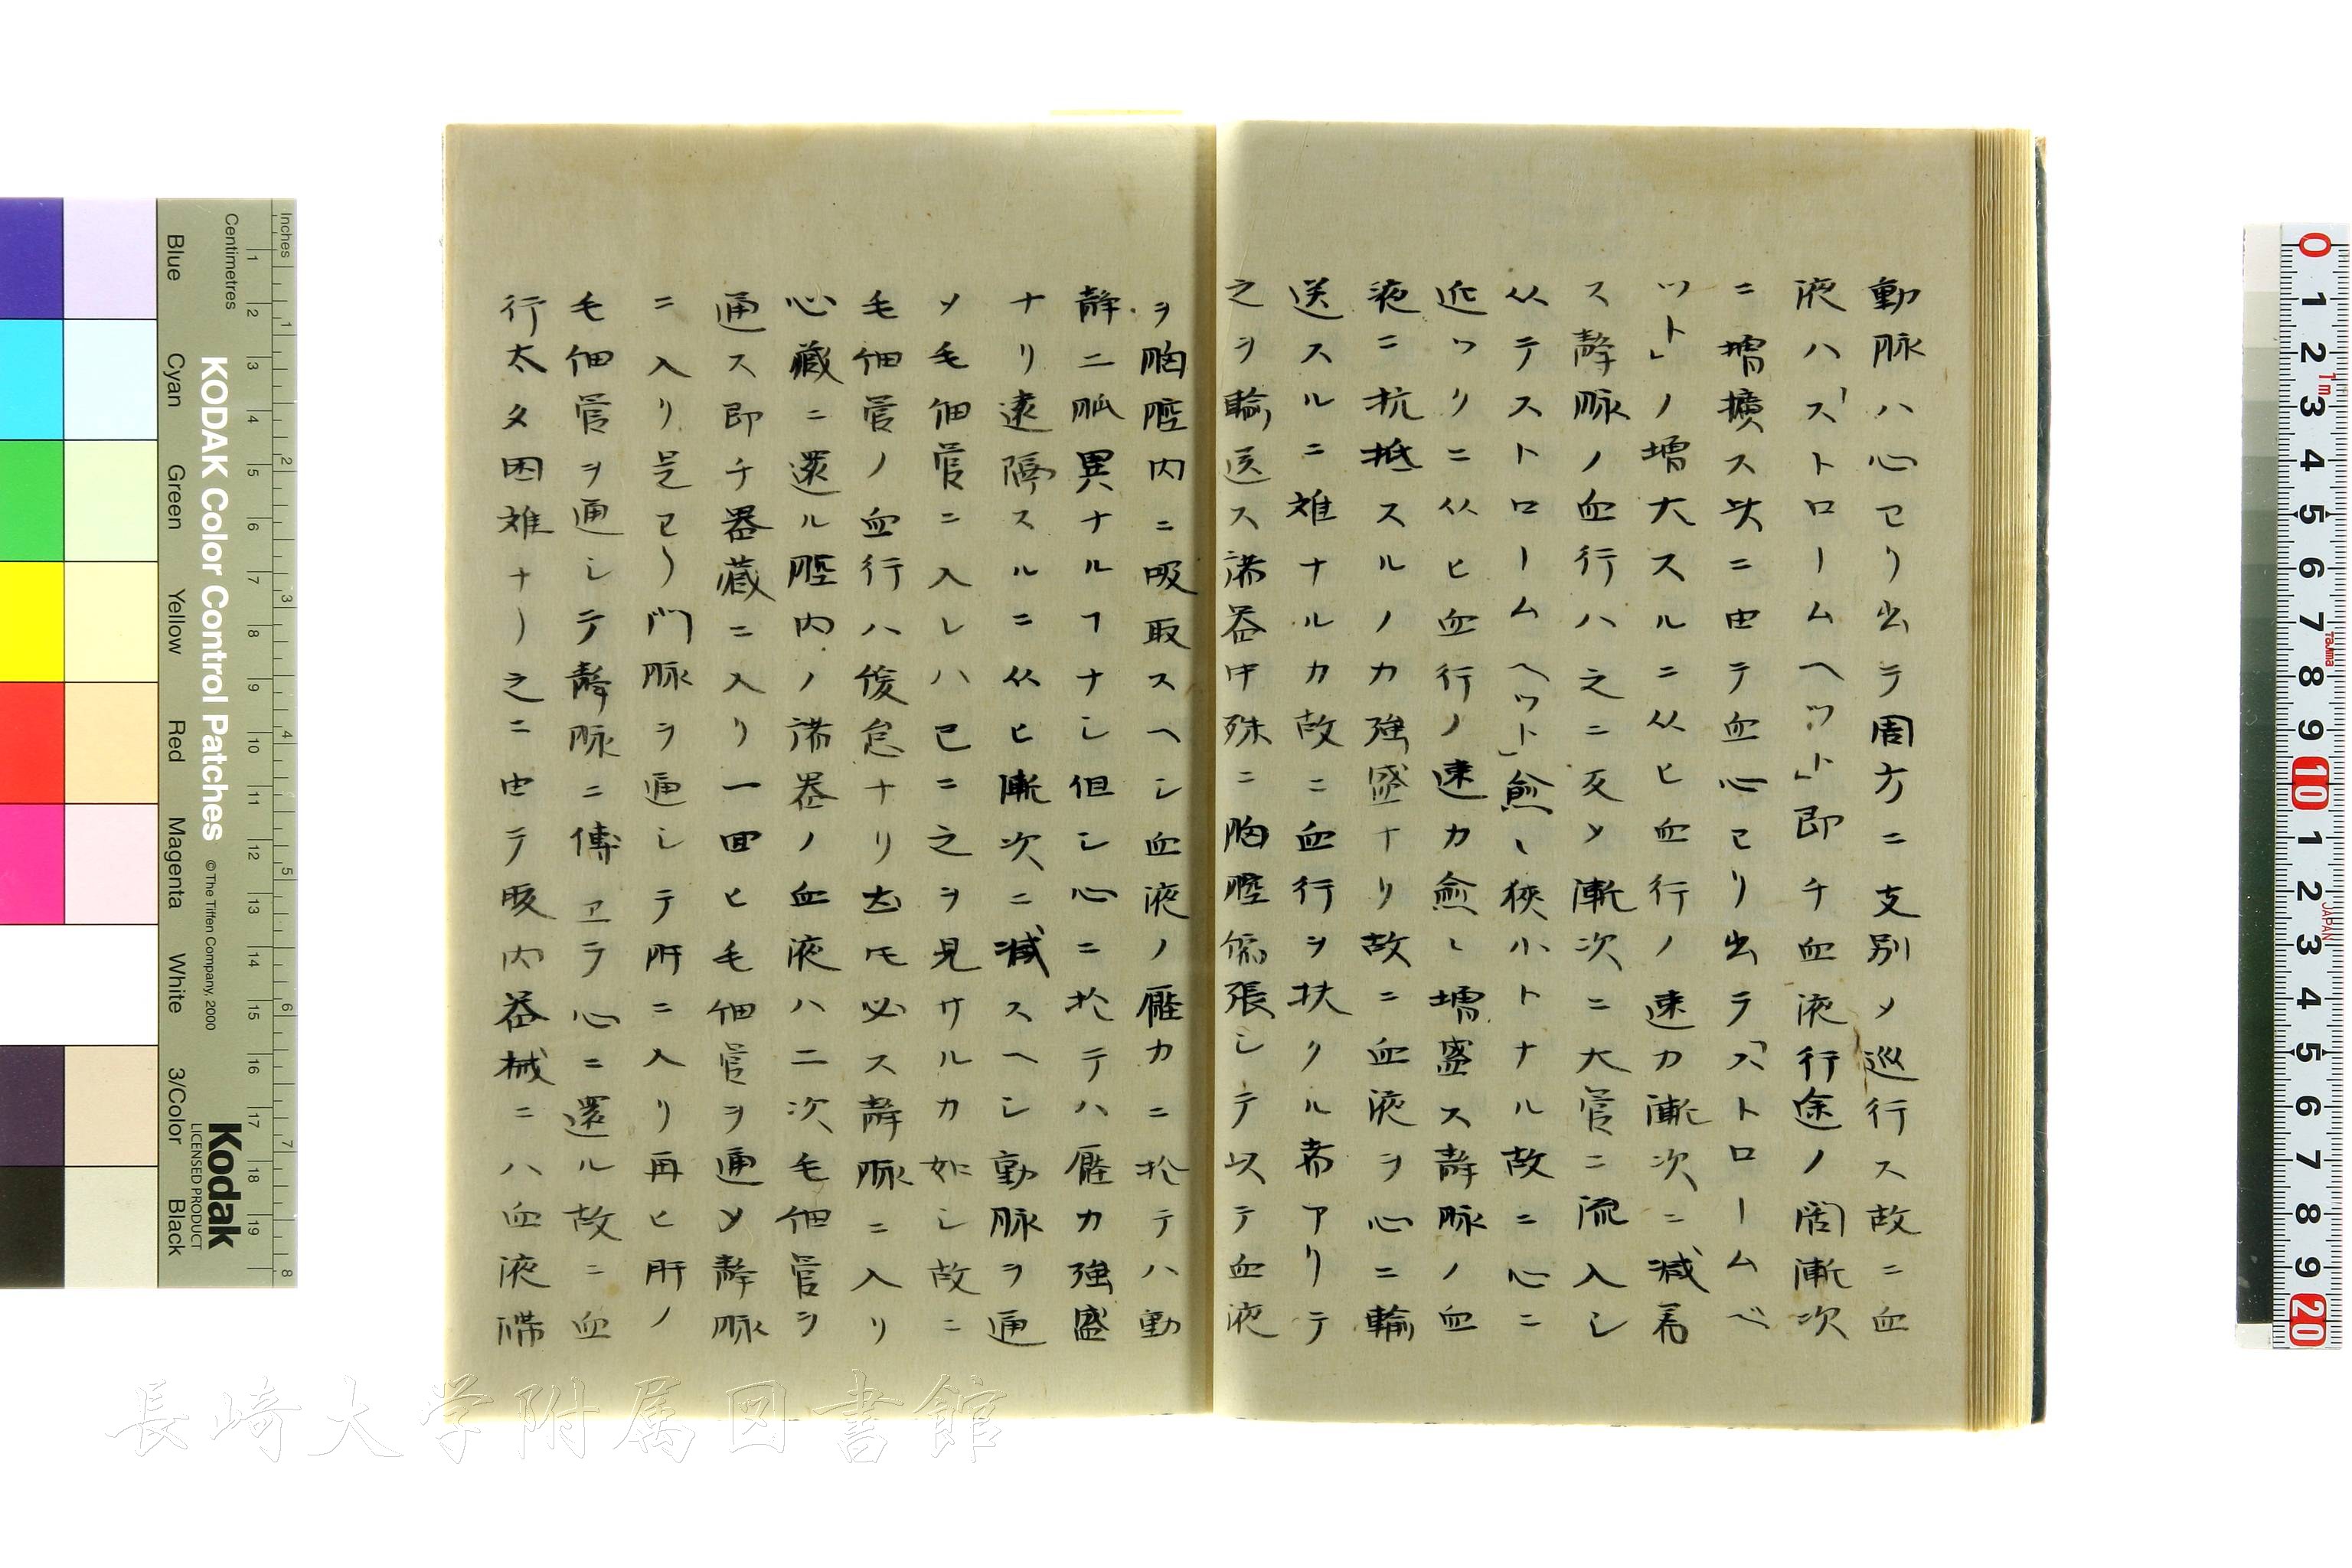 動脉ハ心ヨリ出テ周方ニ支別〆巡行ス故ニ血
液ハ「ストロームヘット」即チ血液行途ノ闊漸次
ニ増擴ス故ニ由テ血心ヨリ出テ「ストロームベ
ット」ノ増大スルニ从ヒ血行ノ速力漸次ニ減若
ス静脉ノ血行ハ之ニ反〆漸次ニ大管ニ流入シ
从テストロームヘット」愈〻狹小トナル故ニ心ニ
近ツクニ从ヒ血行ノ速力愈〻増盛ス静脉ノ血
液ニ抗抵スルノ力強盛ナリ故ニ血液ヲ心ニ輸
送スルニ難ナルカ故ニ血行ヲ扶クル者アリテ
之ヲ輸送ス諸器中殊ニ胸腔侈張シテ以テ血液
ヲ胸腔内ニ吸取スヘシ血液ノ壓力ニ於テハ動
静二脉異ナルヿナシ但シ心ニ於テハ壓力強盛
ナリ遠隔スルニ从ヒ漸次ニ減スヘシ動脉ヲ通
〆毛細管ニ入レハ已ニ之ヲ見サルカ如シ故ニ
毛細管ノ血行ハ緩怠ナリ然𪜈必ス静脉ニ入リ
心臓ニ還ル腔内ノ諸器ノ血液ハ二次毛細管ヲ
通ス即チ器蔵ニ入リ一囬ヒ毛細管ヲ通〆静脉
ニ入リ是ヨリ門脉ヲ通シテ肝ニ入リ再ヒ肝ノ
毛細管ヲ通シテ静脉ニ傳ヱテ心ニ還ル故ニ血
行太タ困難ナリ之ニ由テ腹内器械ニハ血液滯
Inches
Centimetres
Blue
Cyan
Green
Yellow
Red
Magenta
White
3/Color
Black
KODAK Color Control Patches
© The Tiffen Company, 2000
Kodak
LICENSED PRODUCT
長崎大学附属図書館